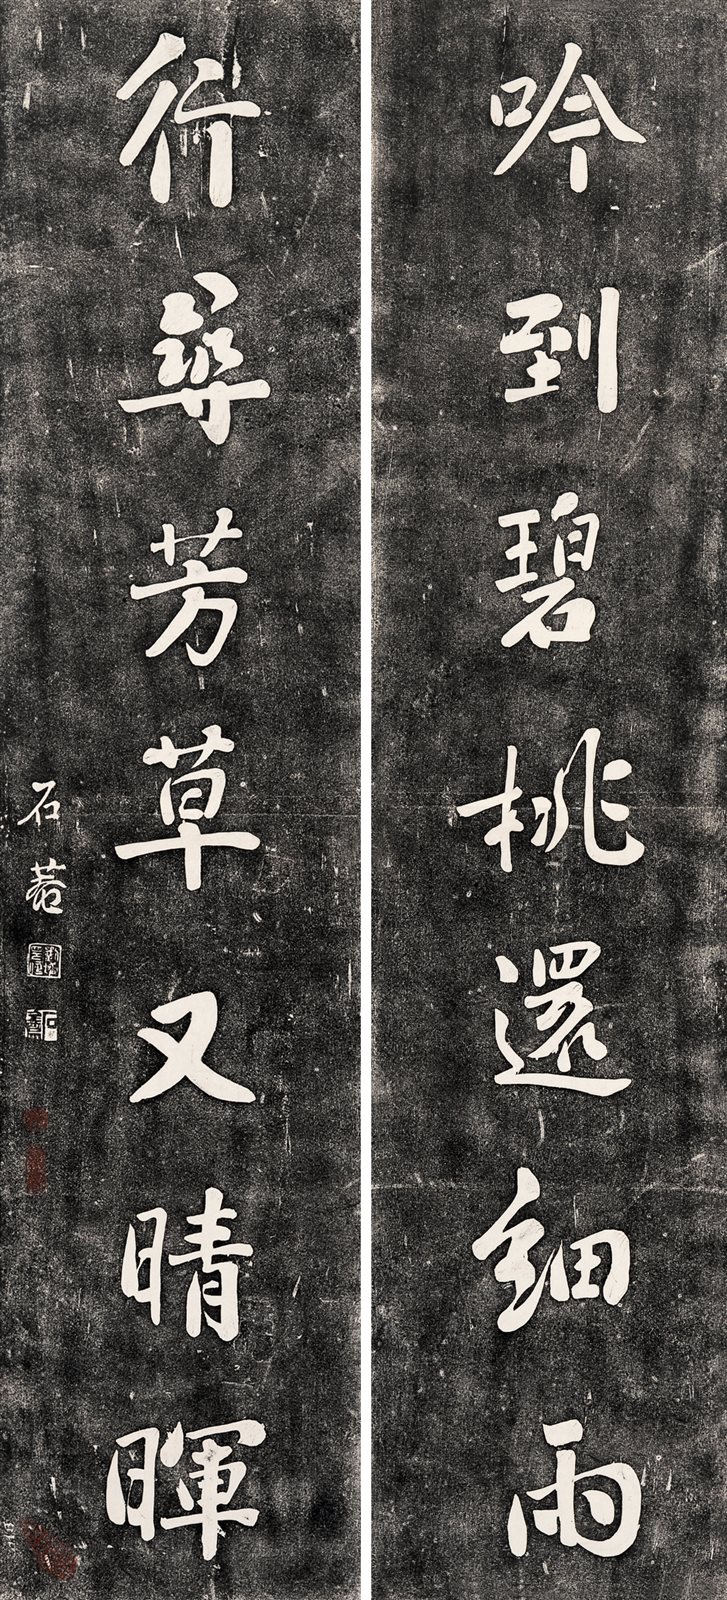 吟到碧桃還細雨
行尋芳草又晴暉
石菴